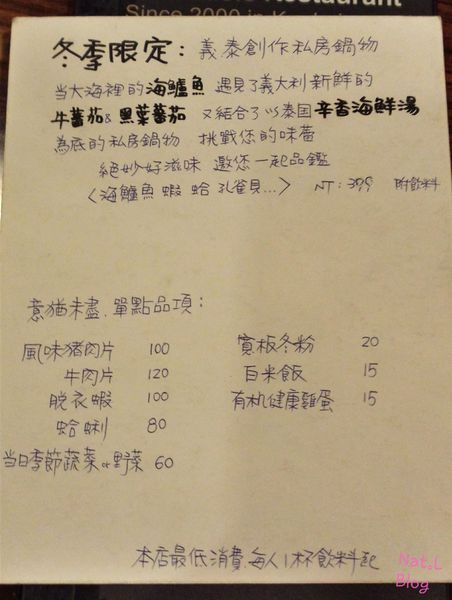 Restaurant
Since 2000 in
冬季限定：義.泰創作私房鍋物
当大海裡的海鱸魚 遇見了義大利新鮮的
牛蕃茄&黑葉蕃茄 又結合了以泰国辛香海鮮湯
為底的私房鍋物 挑戰您的味蕾
絕妙好滋味 邀您一起品鑑
〈海鱸魚 蝦 蛤 孔雀貝...〉 NT：399 附飲料
意猶未盡.單點品項：
風味猪肉片 100
牛肉片 120
脫衣蝦 100
蛤蜊 80
当日季節蔬菜or野菜 60
寬板冬粉 20
白米飯 15
有机健康雞蛋 15
本店最低消費.每人1杯飲料起
Nat.L
Blog